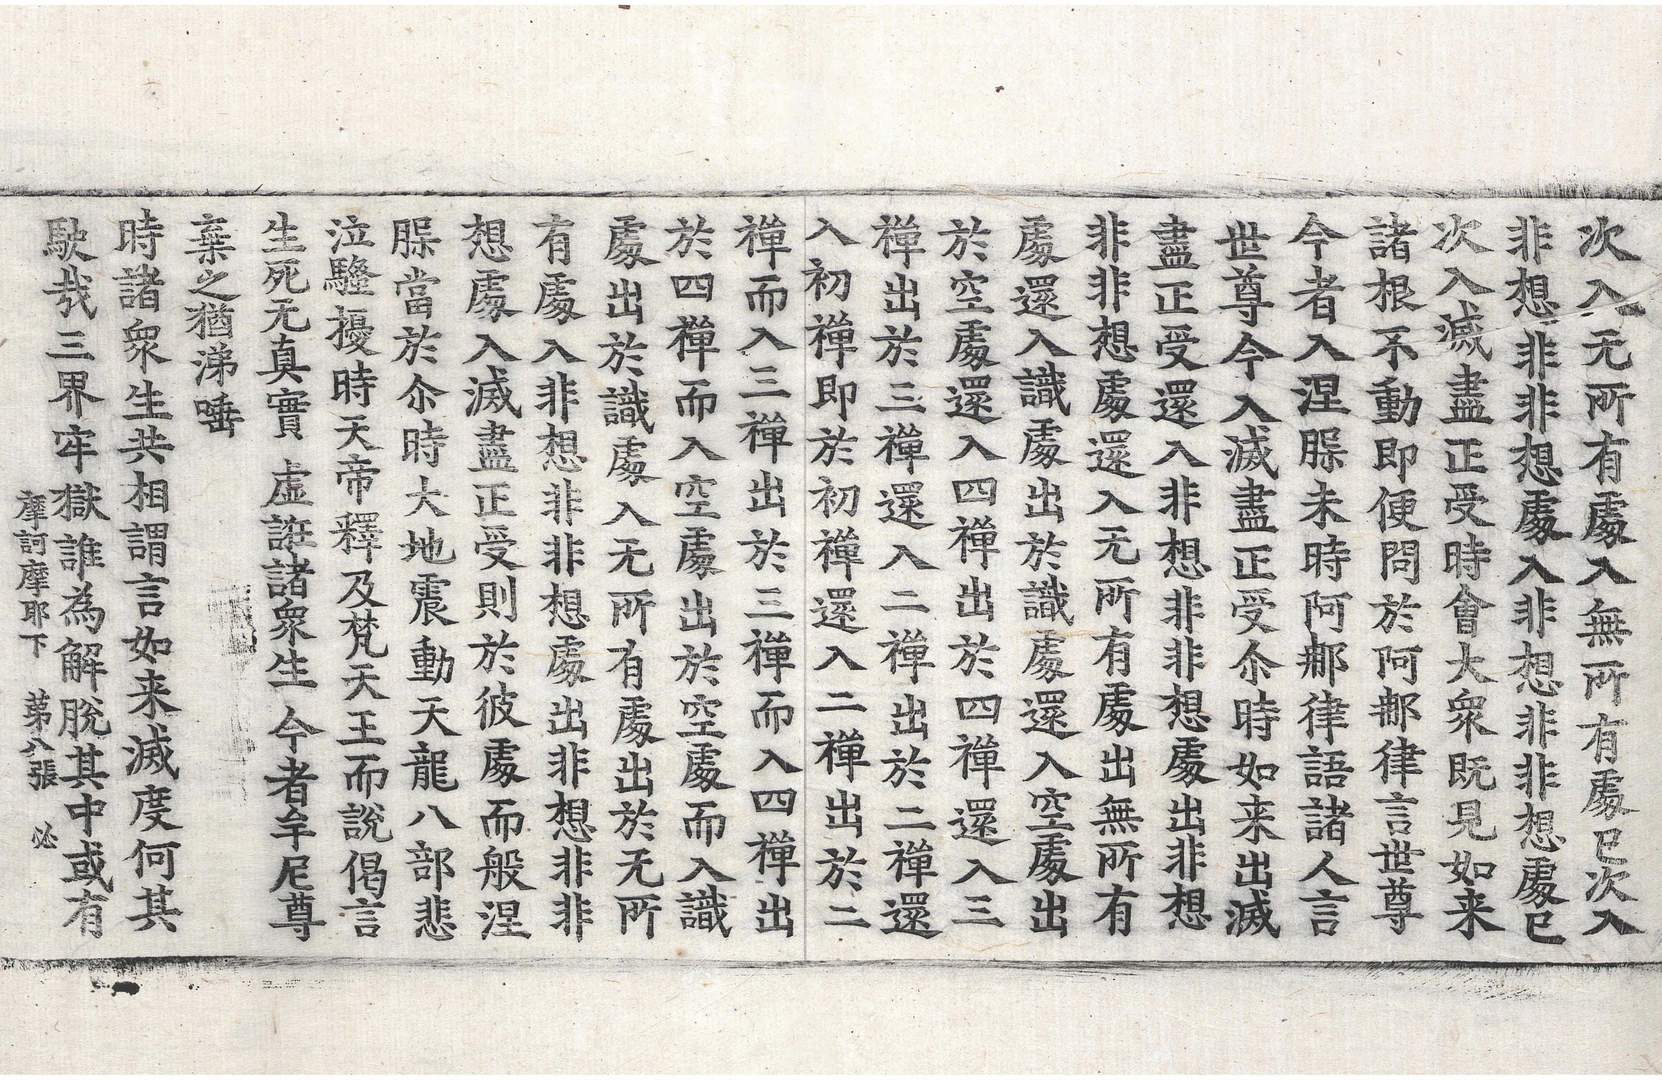 次入无所有處入無所有處已次入
非想非非想處入非想非非想處已
次入滅盡正受時會大衆既見如来
諸根不動即便問於阿𨚗律言世尊
今者入涅槃未時阿𨚗律語諸人言
世尊今入滅盡正受尒時如来出滅
盡正受還入非想非非想處出非想
非非想處還入无所有處出無所有
處還入識處出於識處還入空處出
於空處還入四禪出於四禪還入三
禪出於三禪還入二禪出於二禪還
入初禪即於初禪還入二禪出於二
禪而入三禪出於三禪而入四禪出
於四禪而入空處出於空處而入識
處出於識處入无所有處出於无所
有處入非想非非想處出非想非非
想處入滅盡正受則於彼處而般涅
槃當於尒時大地震動天龍八部悲
泣騷擾時天帝釋及梵天王而說偈言
生死无真實 虛誑諸衆生 今者牟尼尊
棄之猶涕唾
時諸衆生共相謂言如来滅度何其
駛哉三界牢獄誰為解脫其中或有
摩訶摩耶下 第八張 必